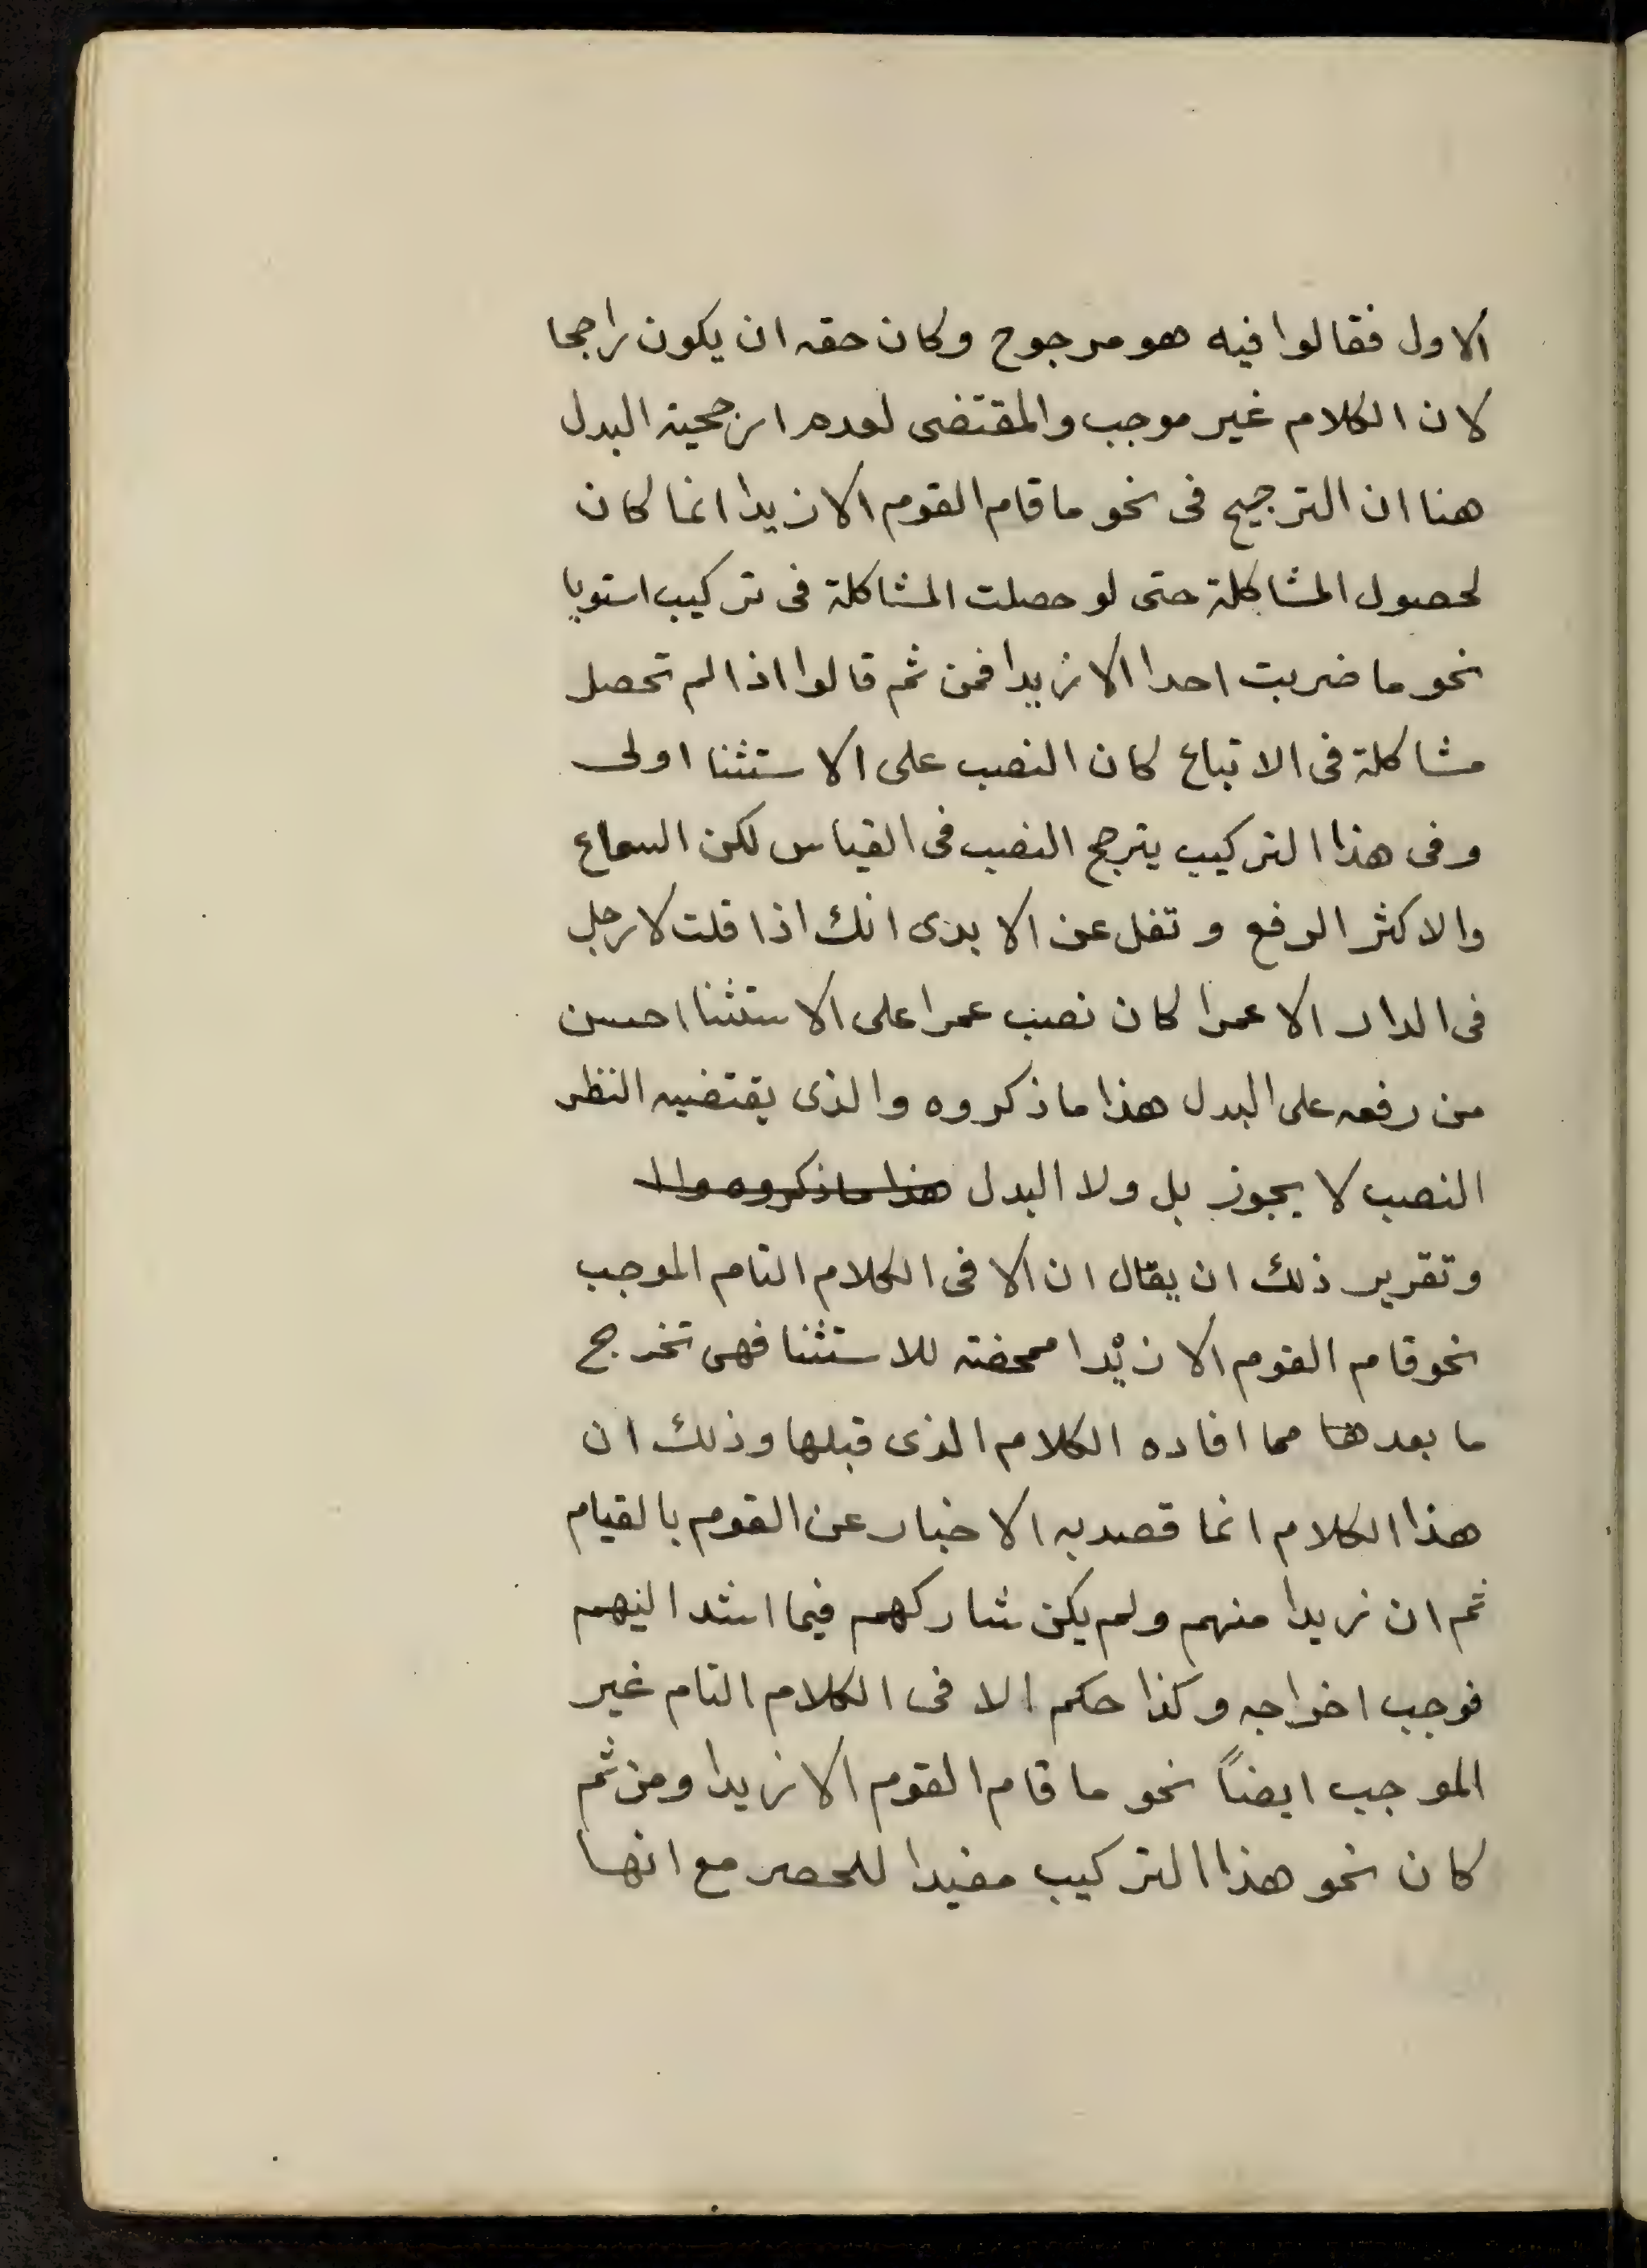 الاول فقالوا فيه هو مرجوح وكان حقه ان يكون راجحا
لان الكلام غير موجب والمقتضى لعدم ارجحية البدل
هنا ان الترجيح فى نحو ما قام القوم الا زيدا انما كان
لحصول المشاكلة حتى لو حصلت المشاكلة فى تركيب استويا
نحو ما ضربت احدا الا زيدا فمن ثم قالوا اذا لم تحصل
مشاكلة فى الاتباع كان النصب على الاستثنا اولى
وفى هذا التركيب يترجح النصب فى القياس لكن السماع
والاكثر الرفع ونقل عن الابدى انك اذا قلت لا رجل
فى الدار الا عمرا كان نصب عمرا على الاستثنا احسن
من رفعه على البدل هذا ما ذكروه والذى يقتضيه النظر
النصب لا يجوز بل ولا البدل هذا ماذكروه والا
وتقرير ذلك ان يقال ان الا فى الكلام التام الموجب
نحو قام القوم الا زيْدا ممحضة للاستثنا فهى تخرج
ما بعدها مما افاده الكلام الذى قبلها وذلك ان
هذا الكلام انما قصد به الاخبار عن القوم بالقيام
ثم ان زيدا منهم ولم يكن شاركهم فيما اسند اليهم
فوجب اخراجه وكذا حكم الا فى الكلام التام غير
الموجب ايضاً نحو ما قام القوم الا زيدا ومن ثم
كان نحو هذا التركيب مفيدا للحصر مع انها